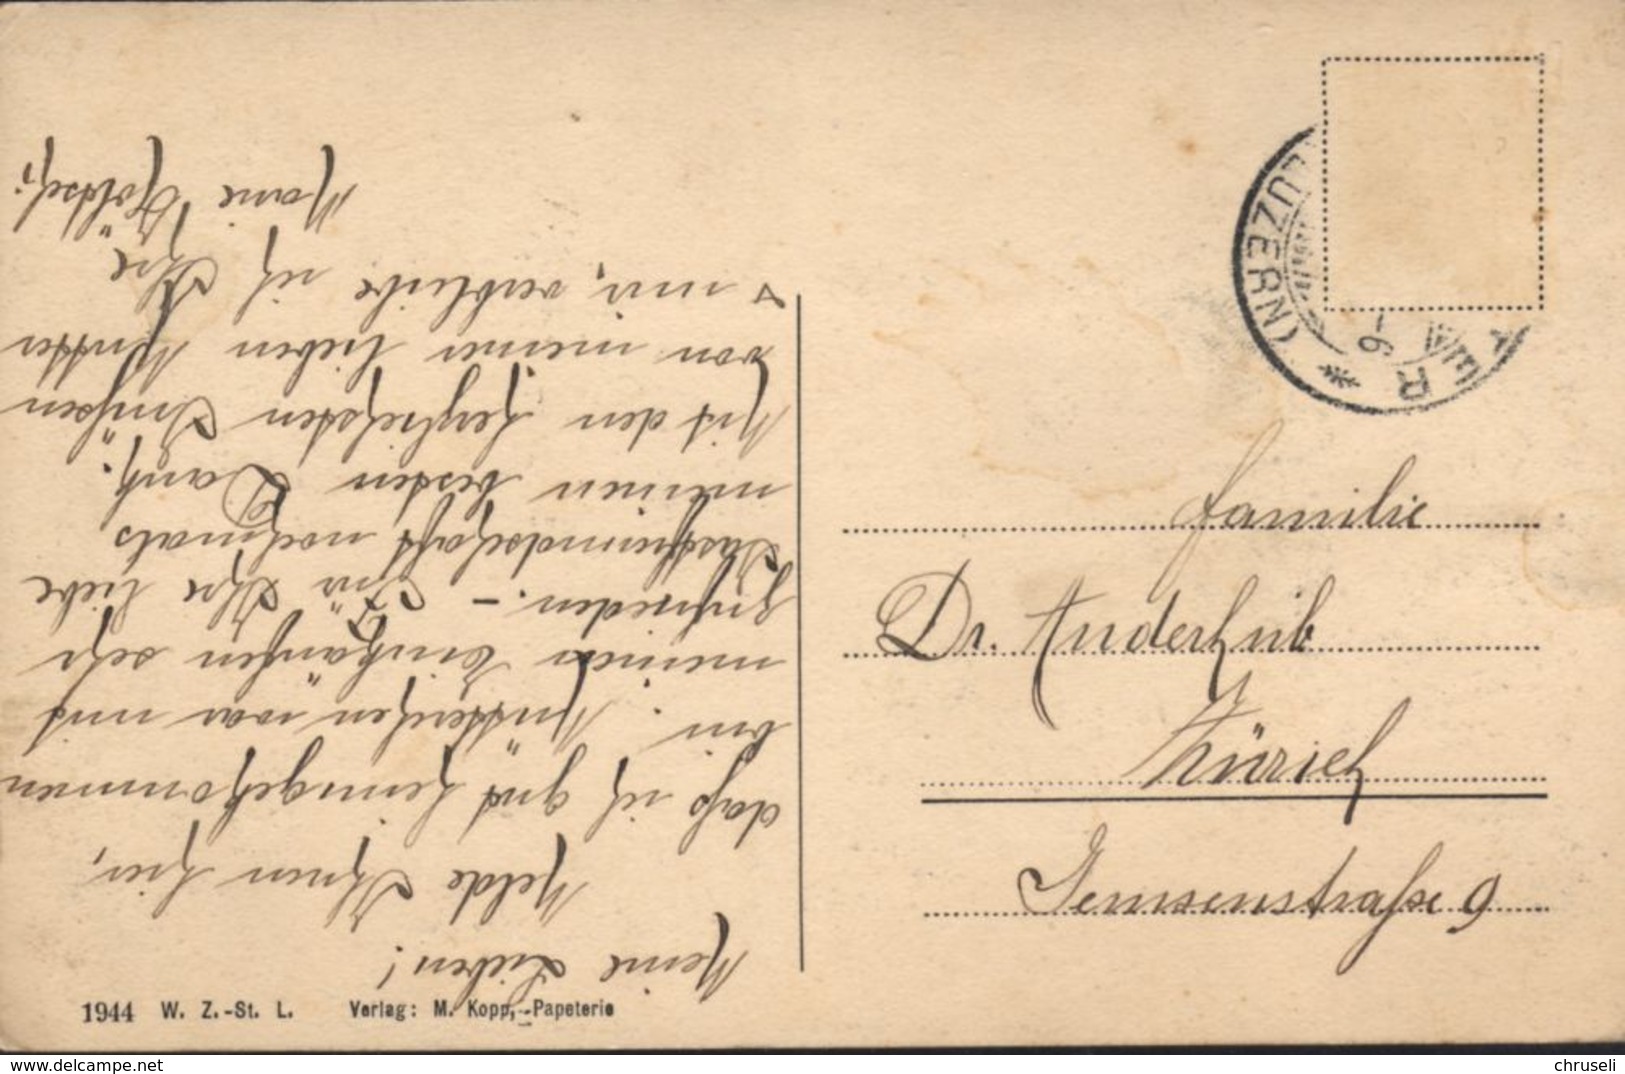 Meine Lieben!
Melde Ihnen hier,
daß ich gut heimgekommen
bin. Mütterchen war mit
meinen Einkäufen sehr
zufrieden. – Für Ihre liebe
Gastfreundschaft nochmals
meinen besten Dank.
Mit den herzlichsten Grüßen
von meiner lieben Mutter
u. mir, verbleibe ich Ihre
Marie
(LUZERN)
-6
Familie
Dr. Anderhub
Zürich
straße 9
1944 W. Z.-St. L. Verlag: M. Kopp, Papeterie
chruseli